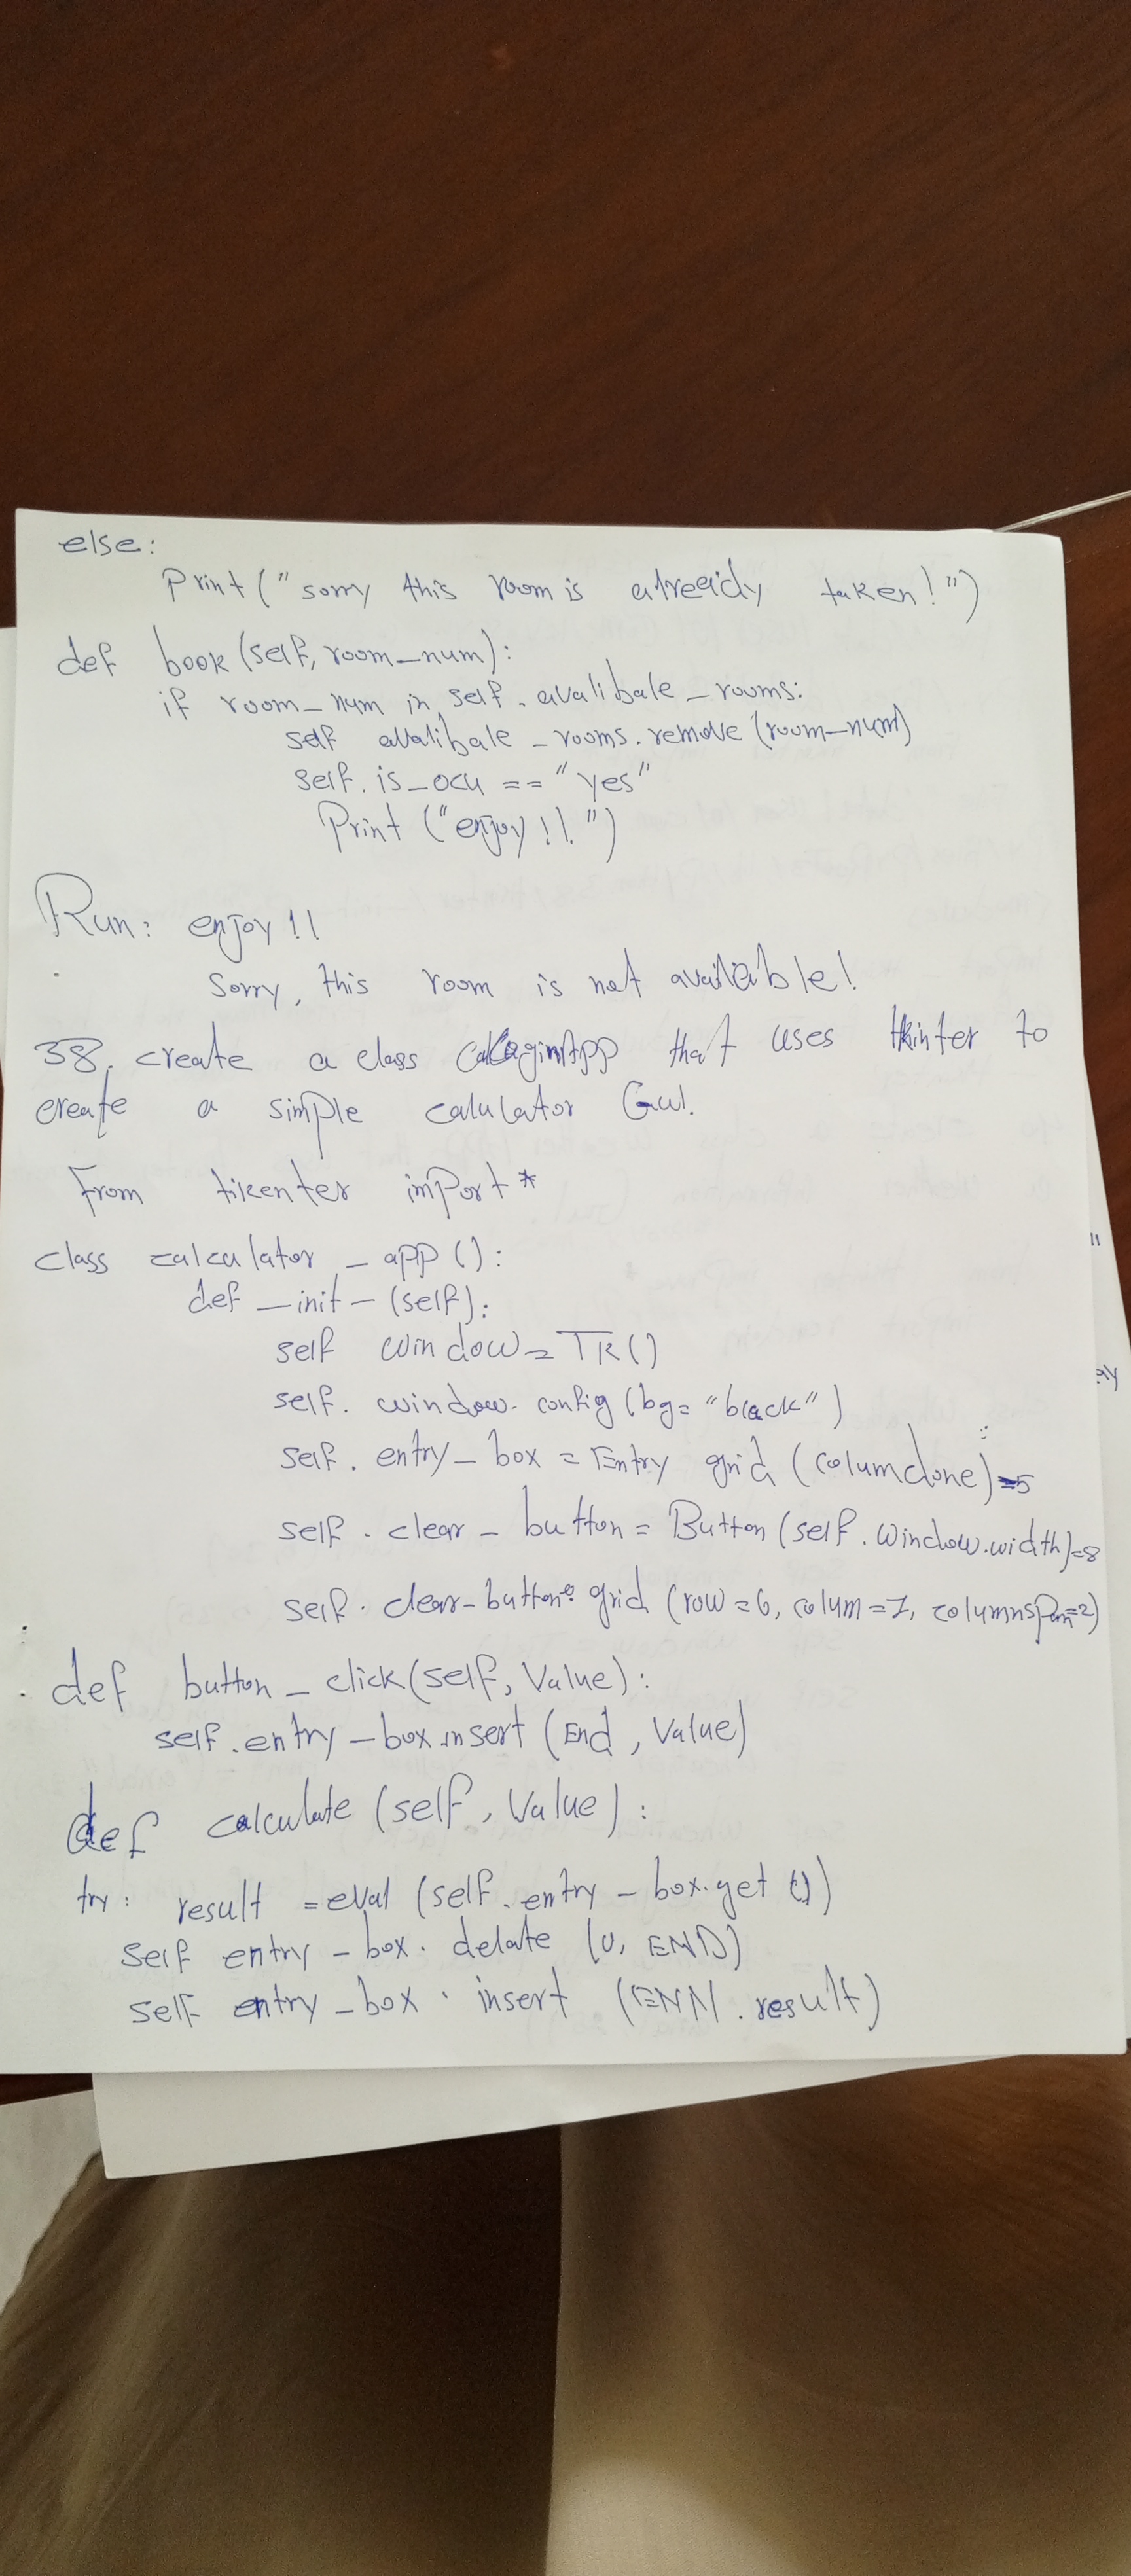 else:
Print ("sorry this room is already taken!")
def book (self, room_num):
if room_num in self. avalibale _ rooms:
self avalibale _ rooms. remove (room_num)
self. is_ocu == "yes"
Print ("enjoy !!.")
Run: enjoy !!
Sorry, this room is not available!
38. create a class that uses tkinter to
create a simple calulator Gui.
From tikenter import *
class calculator _ app ():
def _init_ (self):
self window = TK()
self. window. config (bg= "black")
self. entry_ box = Entry grid (columclone)=5
self. clear _ button = Button (self. window.width)=8
self. clear_button. grid (row = 6, colum=1, columnspan=2)
def button _ click (self, Value):
self. entry _ box. insert (End, Value)
def calculate (self, Value):
try: result = eval (self. entry _ box. get ())
self entry _ box. delate (0, END)
self entry _ box. insert (ENN. result)